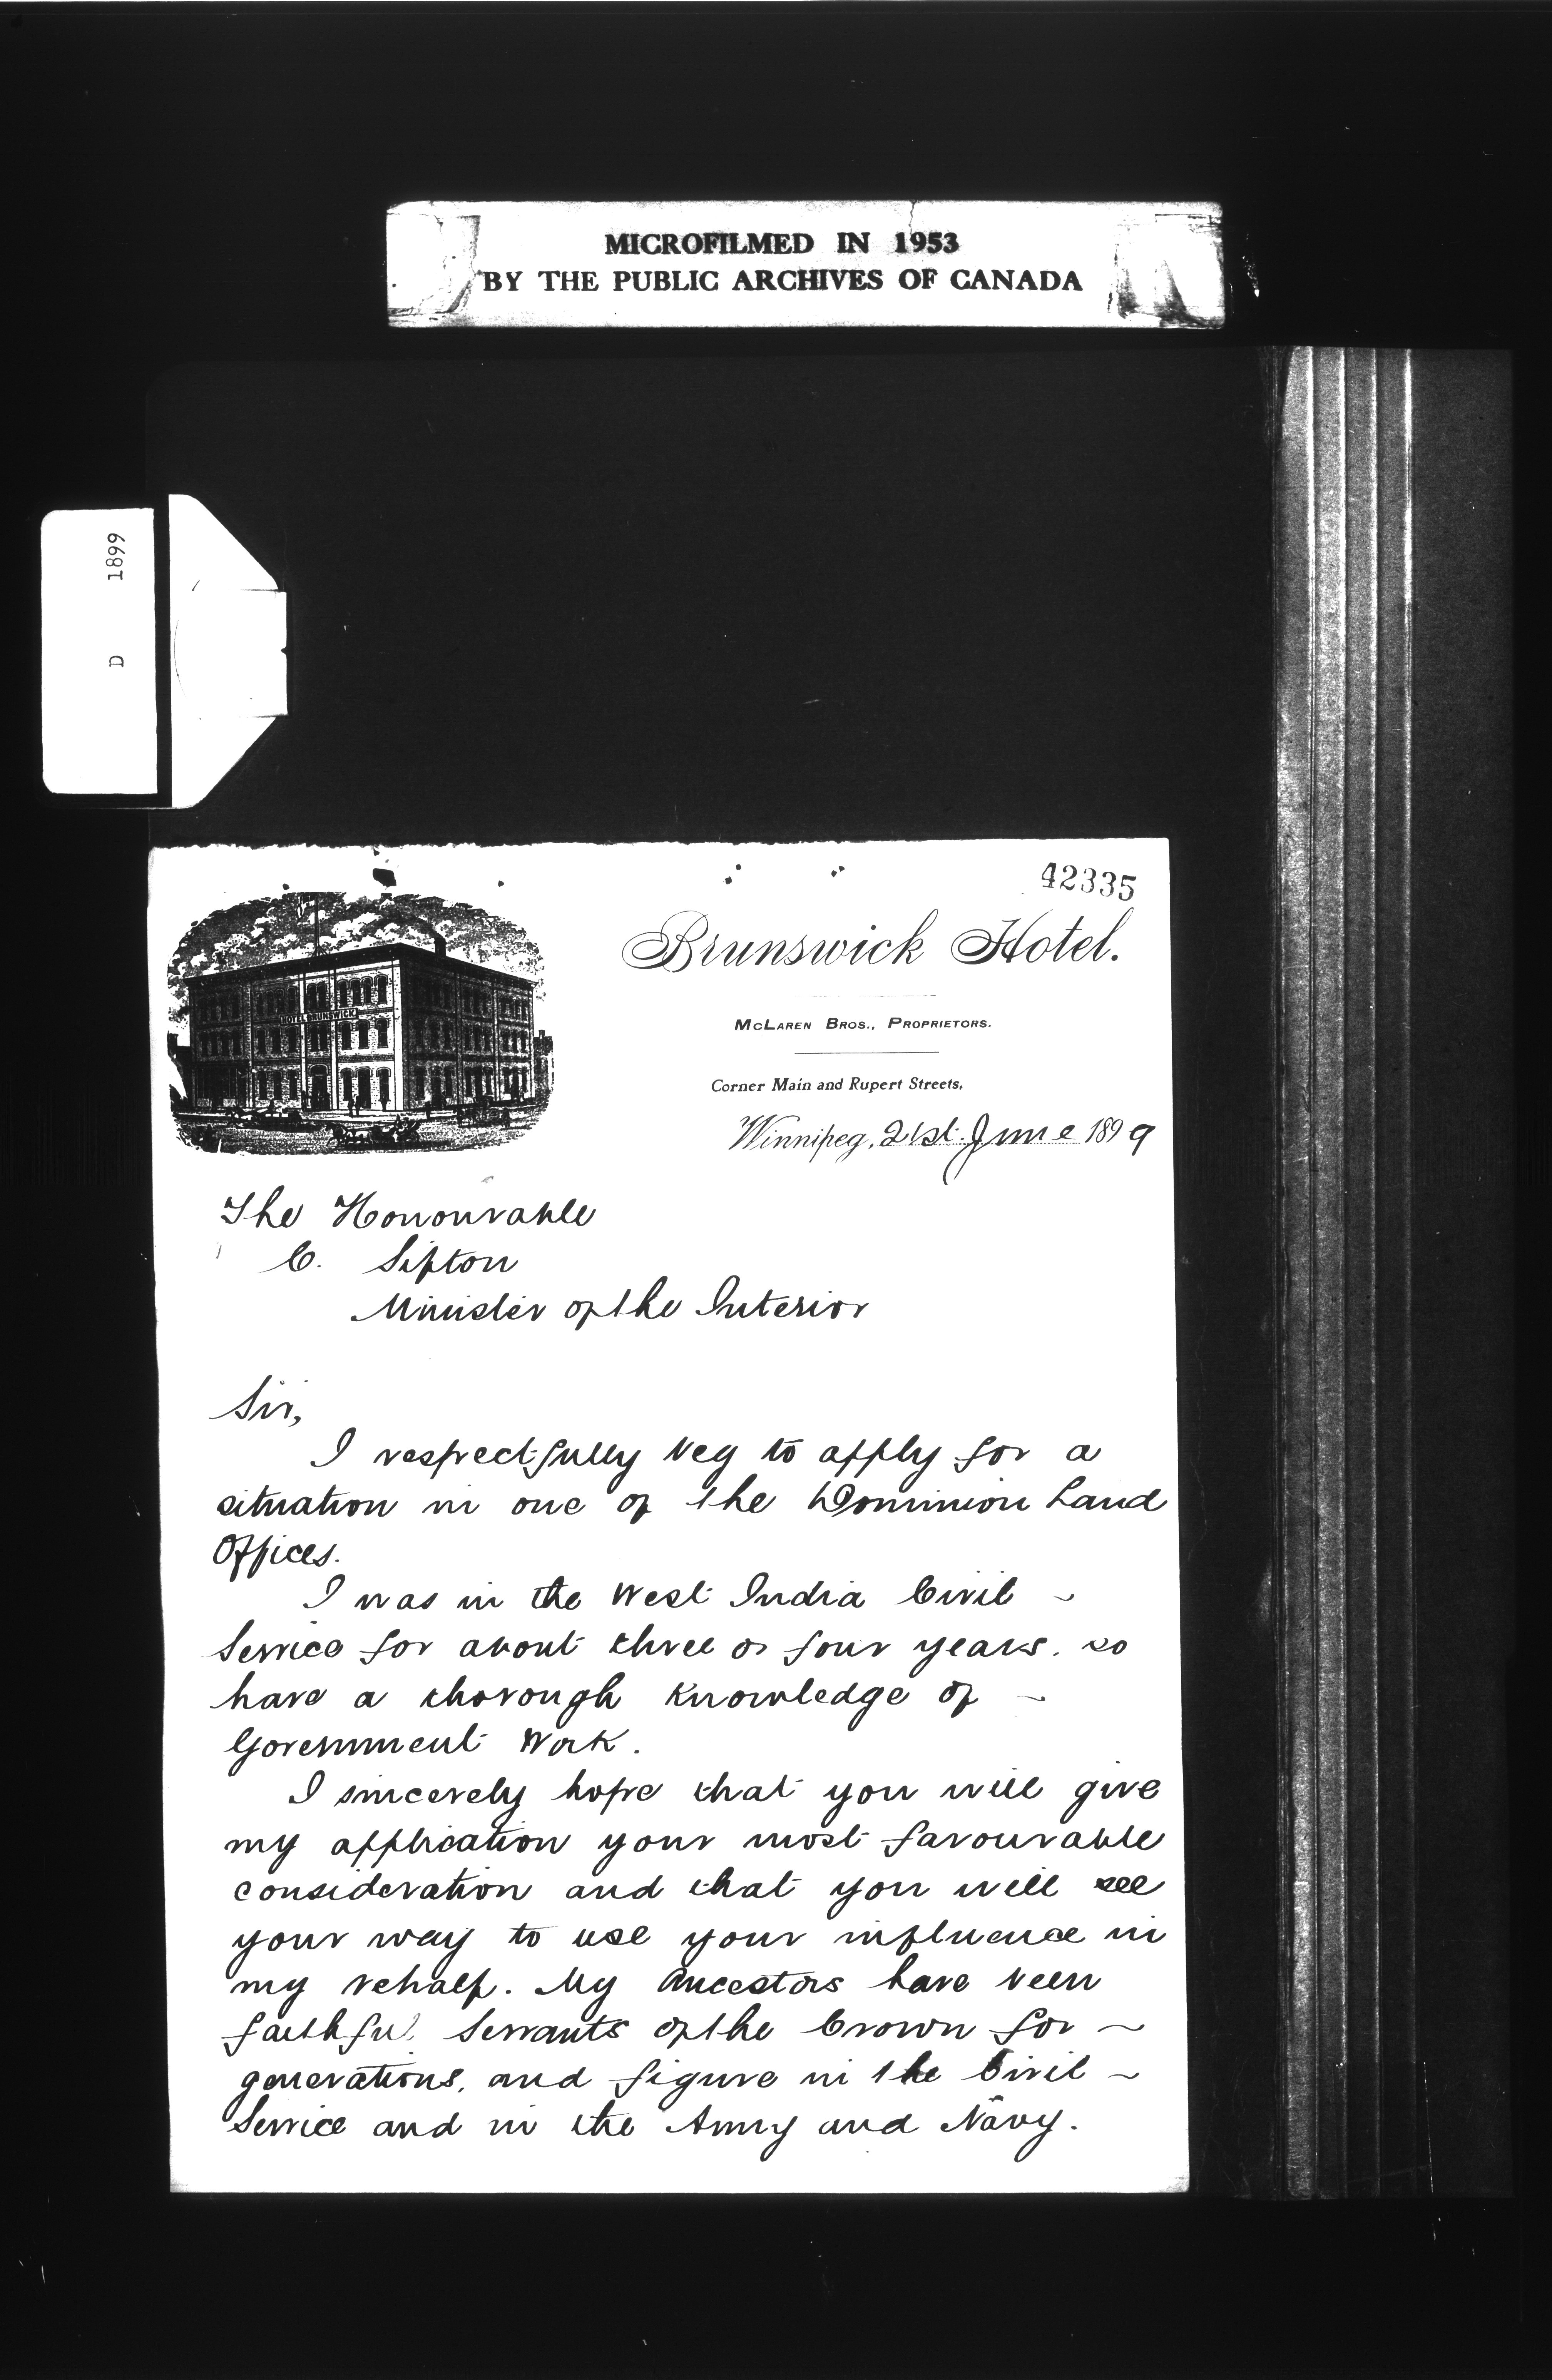 MICROFILMED IN 1953
BY THE PUBLIC ARCHIVES OF CANADA
D 1899
42335
HOTEL BRUNSWICK
Brunswick Hotel.
McLaren Bros., Proprietors.
Corner Main and Rupert Streets,
Winnipeg, 21st. June 1899
The Honourable
C. Sifton
Minister of the Interior
Sir,
I respectfully beg to apply for a
situation in one of the Dominion Land
Offices.
I was in the West India Civil ~
Service for about three or four years. so
have a thorough knowledge of ~
Government Work.
I sincerely hope that you will give
my application your most favourable
consideration and that you will see
your way to use your influence in
my behalf. My Ancestors have been
faithful Servants of the Crown for ~
generations, and figure in the Civil ~
Service and in the Army and Navy.